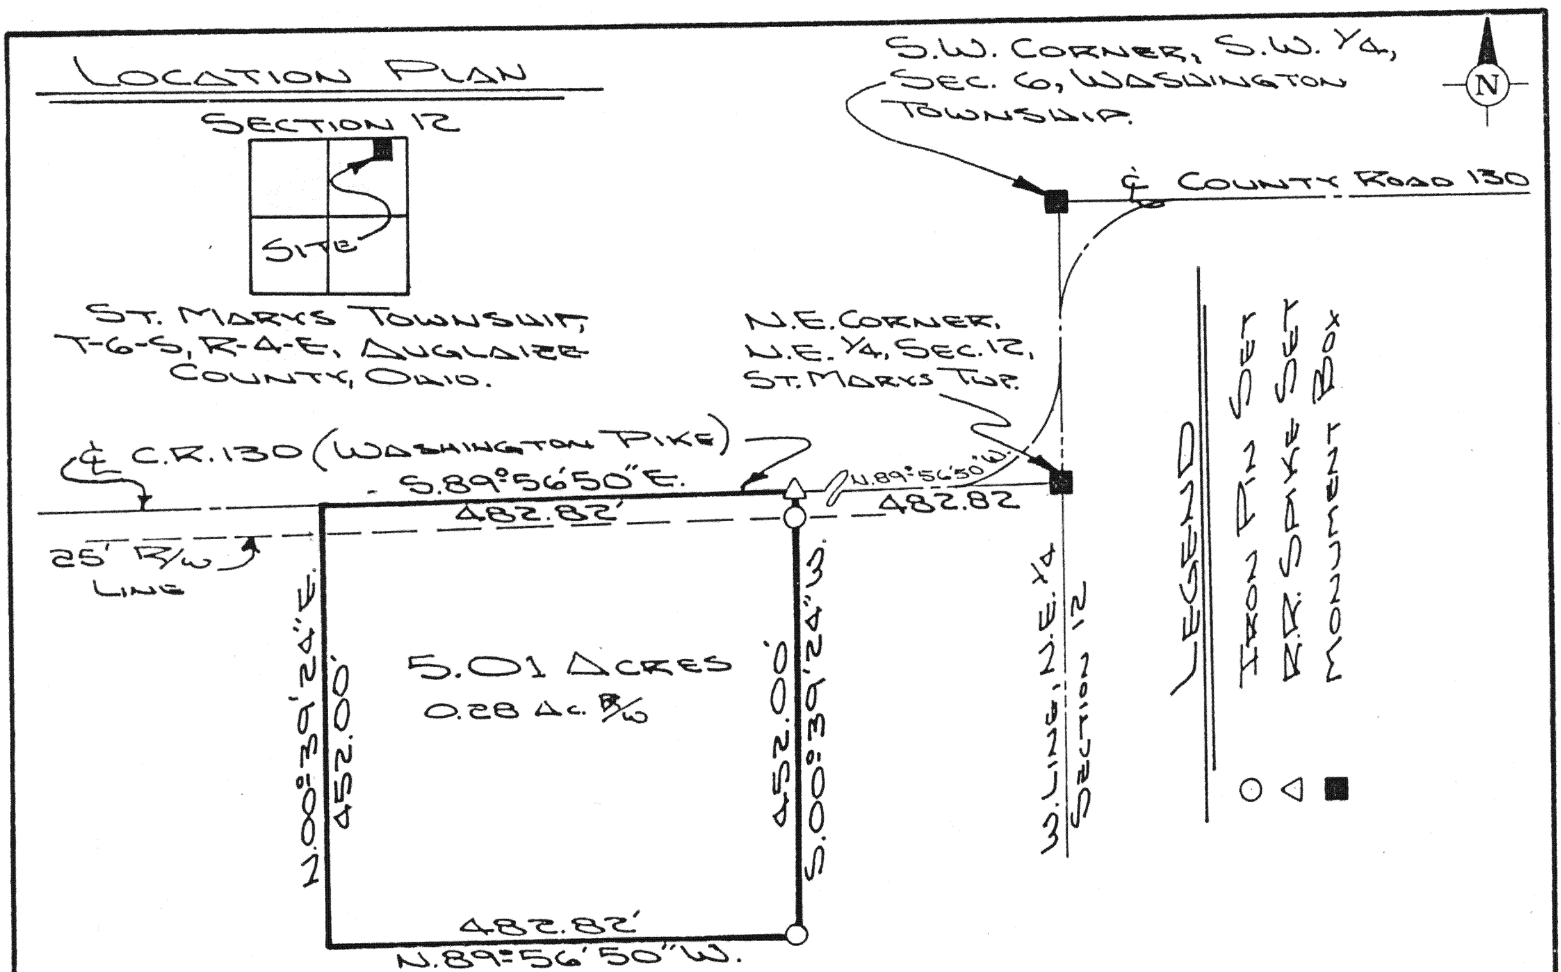 LOCATION PLAN
SECTION 12
SITE
ST. MARYS TOWNSHIP,
T-6-S, R-4-E, AUGLAIZE
COUNTY, OHIO.
S.W. CORNER, S.W. 1/4,
SEC. 6, WASHINGTON
TOWNSHIP.
N
℄ COUNTY ROAD 130
N.E. CORNER,
N.E. 1/4, SEC. 12,
ST. MARYS TWP.
℄ C.R. 130 (WASHINGTON PIKE)
S.89°56'50"E.
482.82'
N.89°56'50"W.
482.82
25' R/W
LINE
N.00°39'24"E.
452.00'
5.01 ACRES
0.28 AC. R/W
452.00'
S.00°39'24"W.
482.82'
N.89°56'50"W.
W. LINE, N.E. 1/4
SECTION 12
LEGEND
IRON PIN SET
R.R. SPIKE SET
MONUMENT BOX